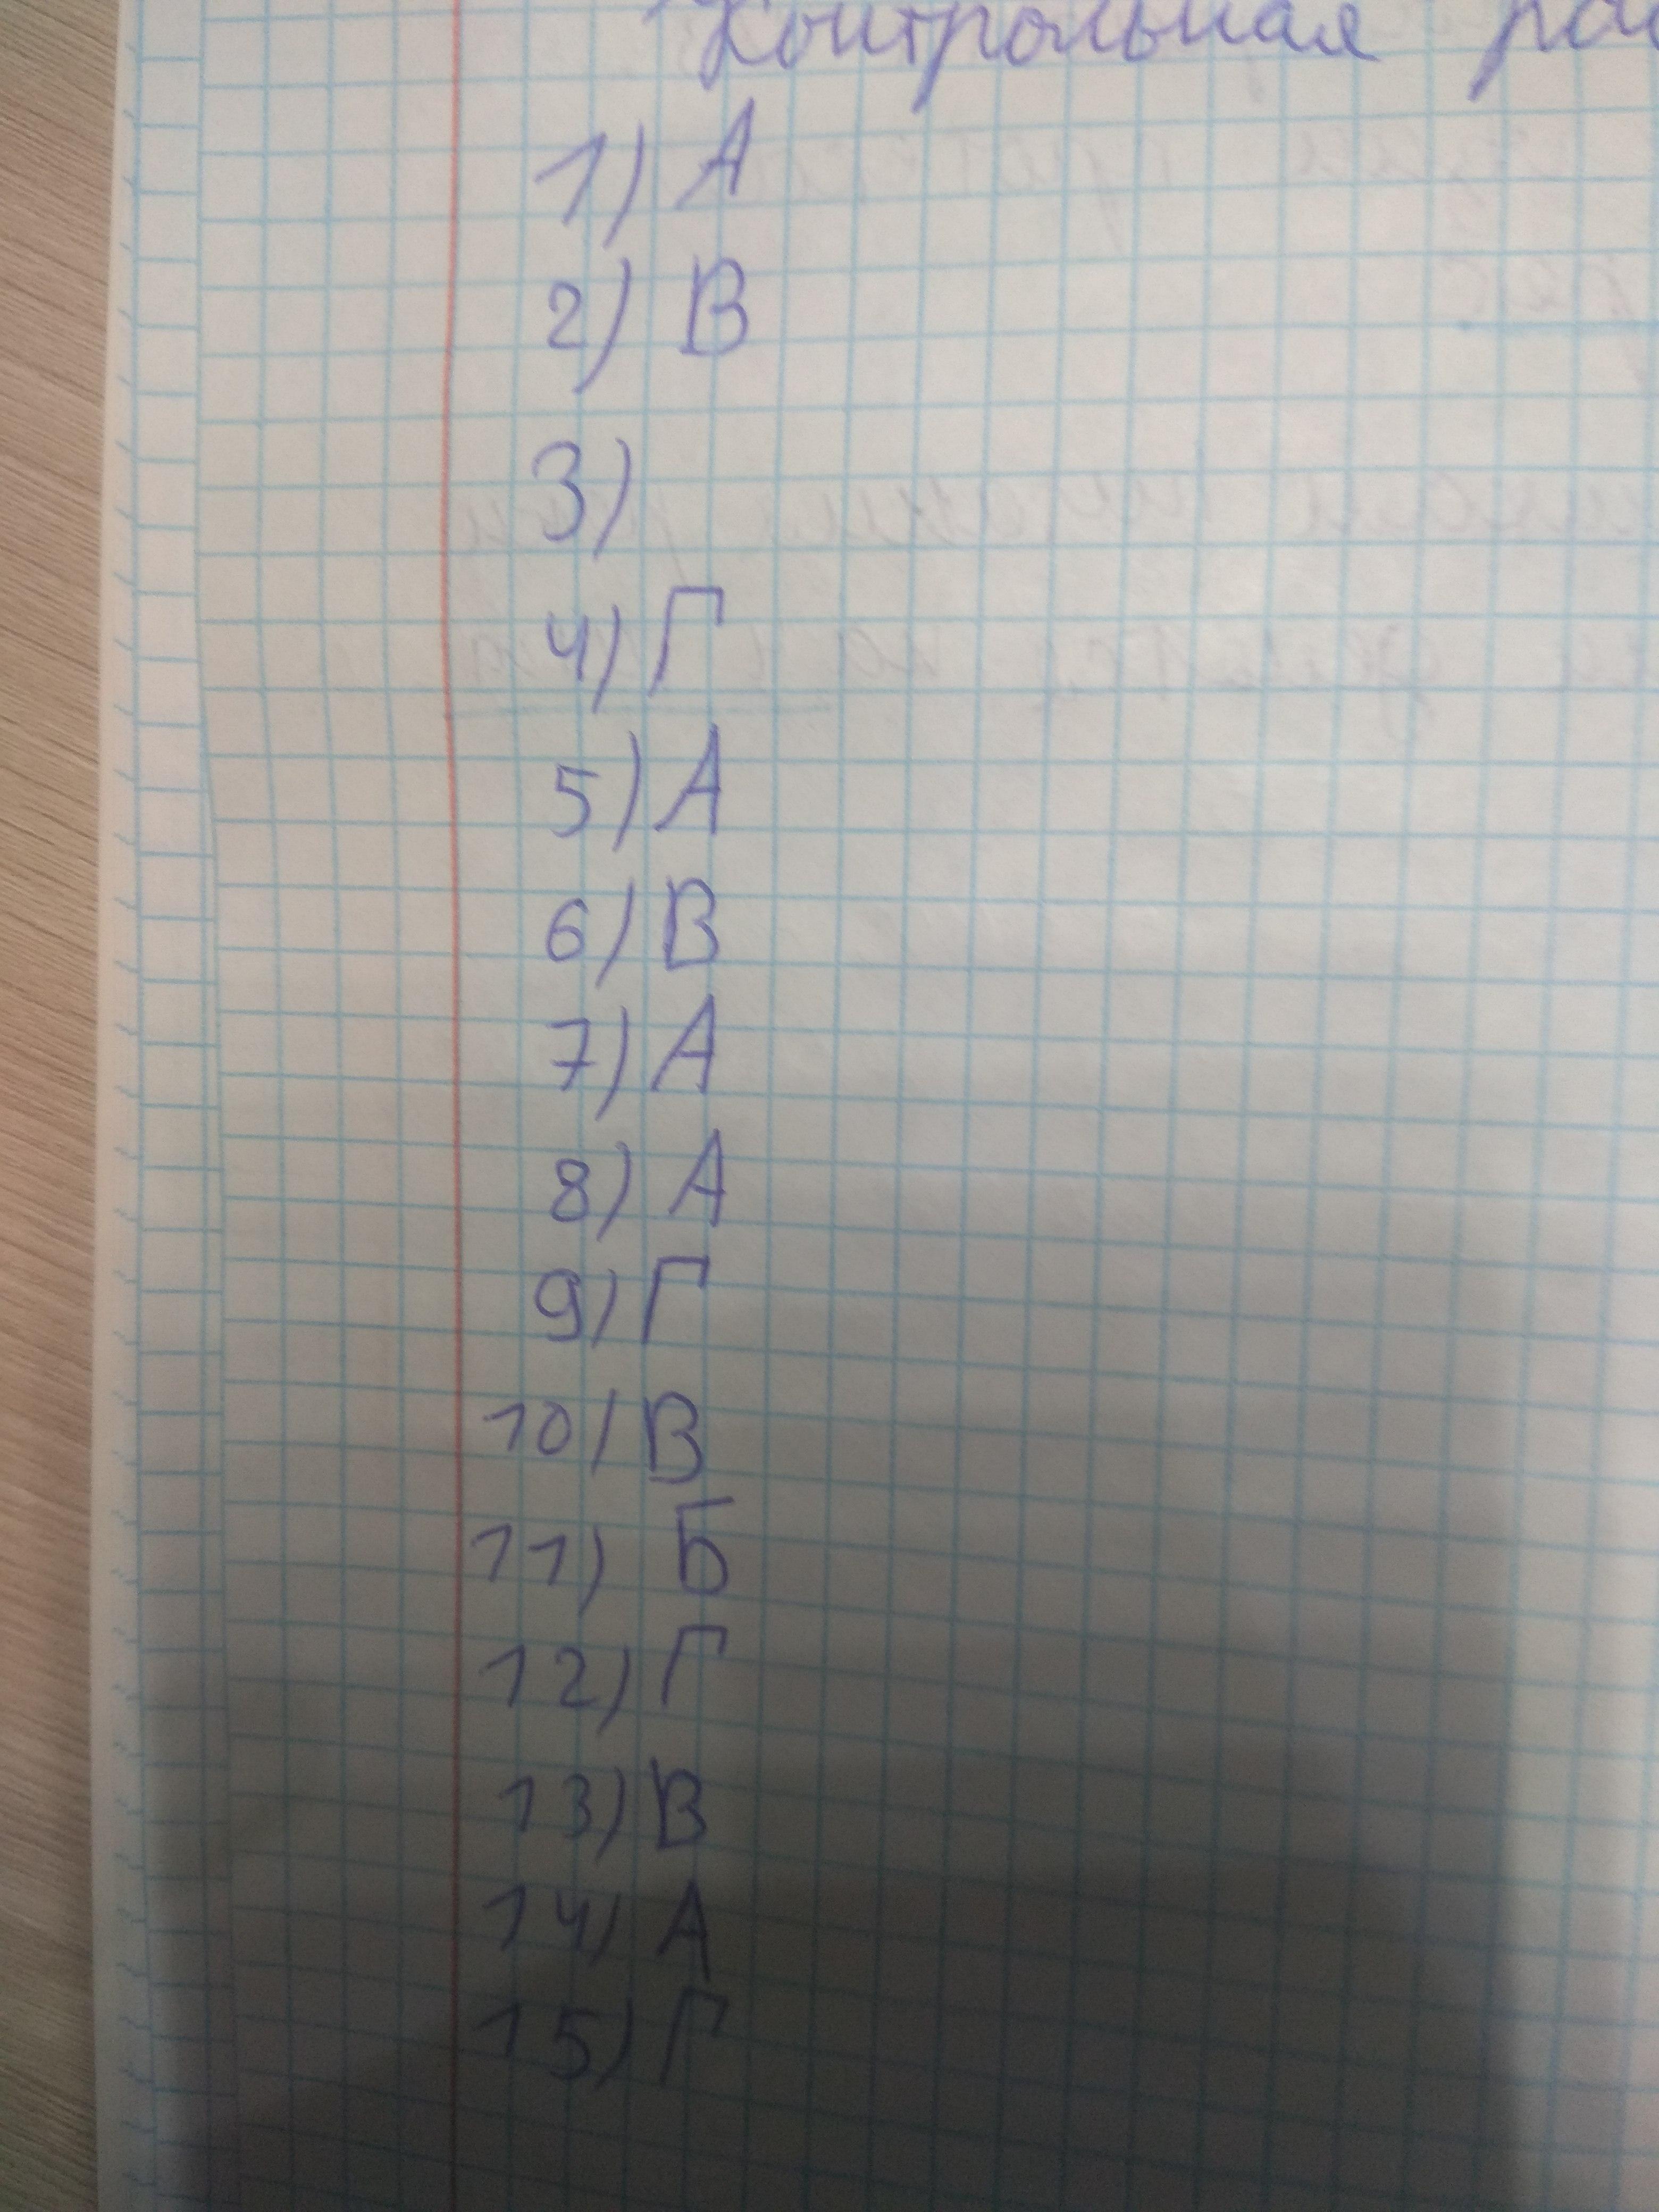 Контрольная
1) А
2) В
3)
4) Г
5) А
6) В
7) А
8) А
9) Г
10) В
11) Б
12) Г
13) В
14) А
15) Г